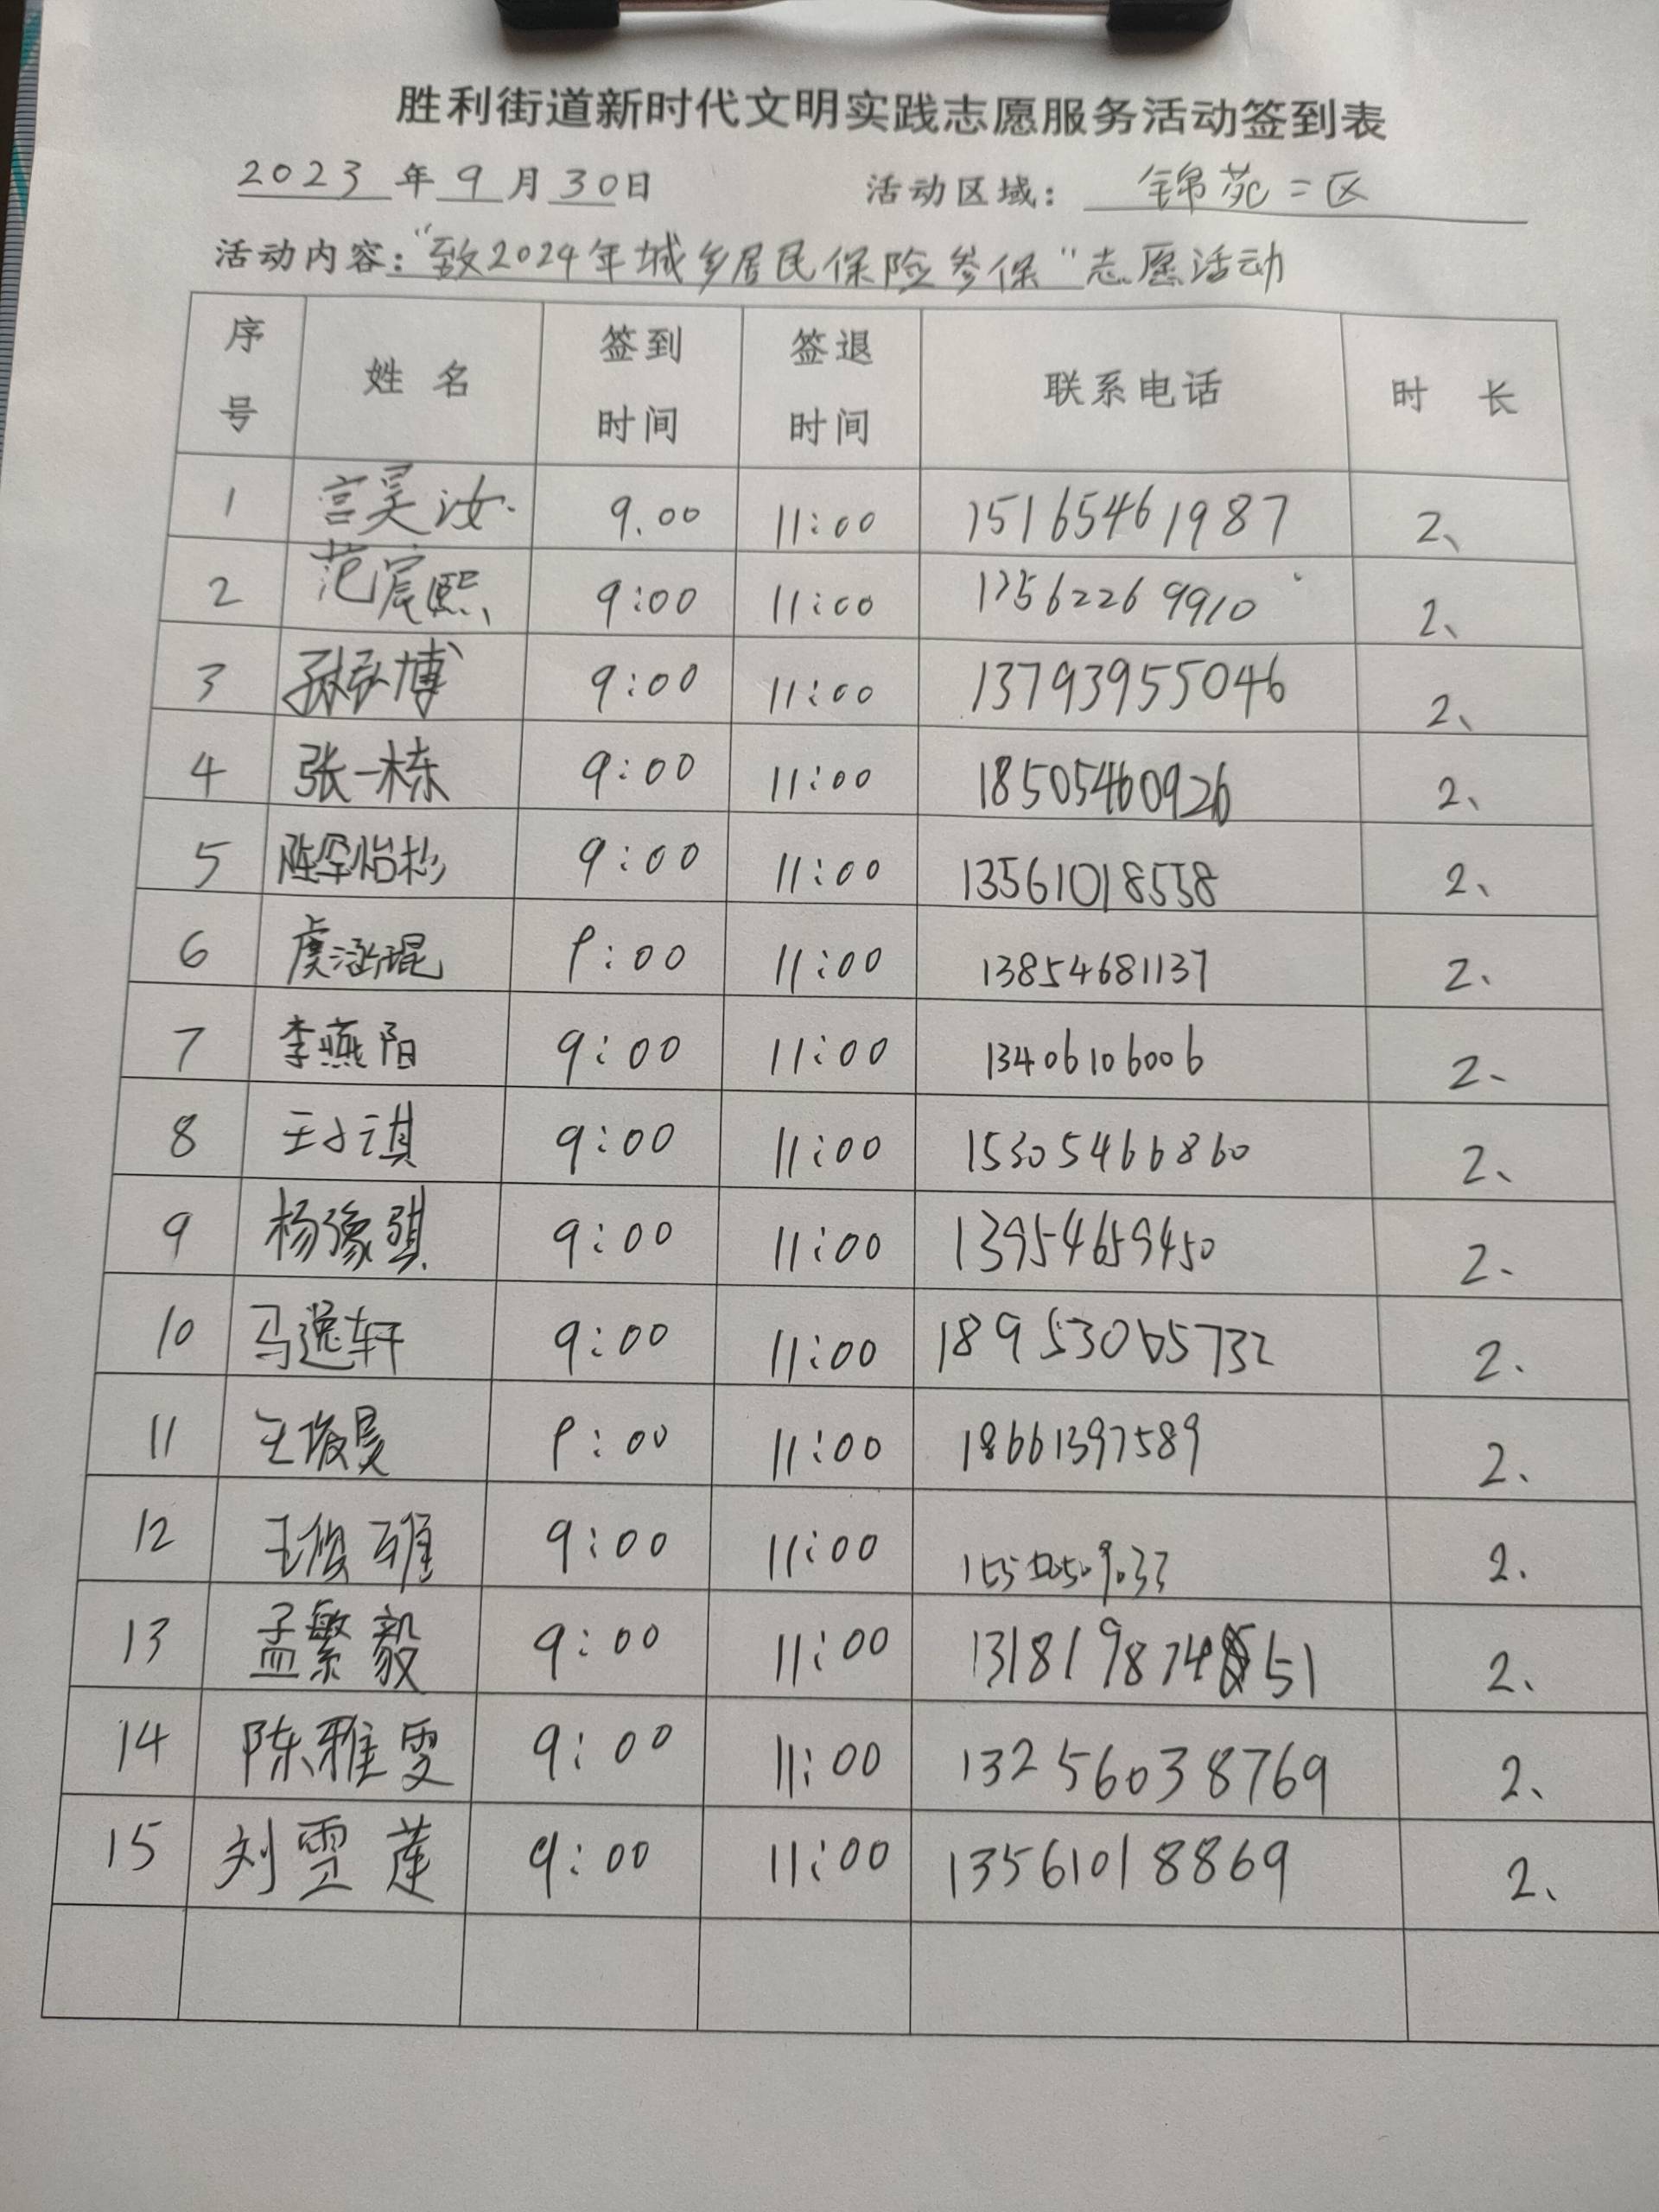 胜利街道新时代文明实践志愿服务活动签到表
2023 年 9 月 30日 活动区域: 锦苑二区
活动内容:"致2024年城乡居民保险参保"志愿活动
序号 姓名 签到时间 签退时间 联系电话 时长
1 宫昊汝 9.00 11:00 15165461987 2、
2 范宸熙 9:00 11:00 2、
3 孙弘博 9:00 11:00 13793955046 2、
4 张一栋 9:00 11:00 18505460926 2、
5 怡杉 9:00 11:00 13561018558 2、
6 虞涵琨 9:00 11:00 13854681137 2、
7 李燕阳 9:00 11:00 13406106006 2、
8 王小淇 9:00 11:00 15305466860 2、
9 杨豫骐 9:00 11:00 13954659450 2、
10 马逸轩 9:00 11:00 18953065732 2、
11 王俊昊 9:00 11:00 18661397589 2、
12 王俊 9:00 11:00 2、
13 孟繁毅 9:00 11:00 13181987451 2、
14 陈雅雯 9:00 11:00 13256038769 2、
15 刘雪莲 9:00 11:00 13561018869 2、